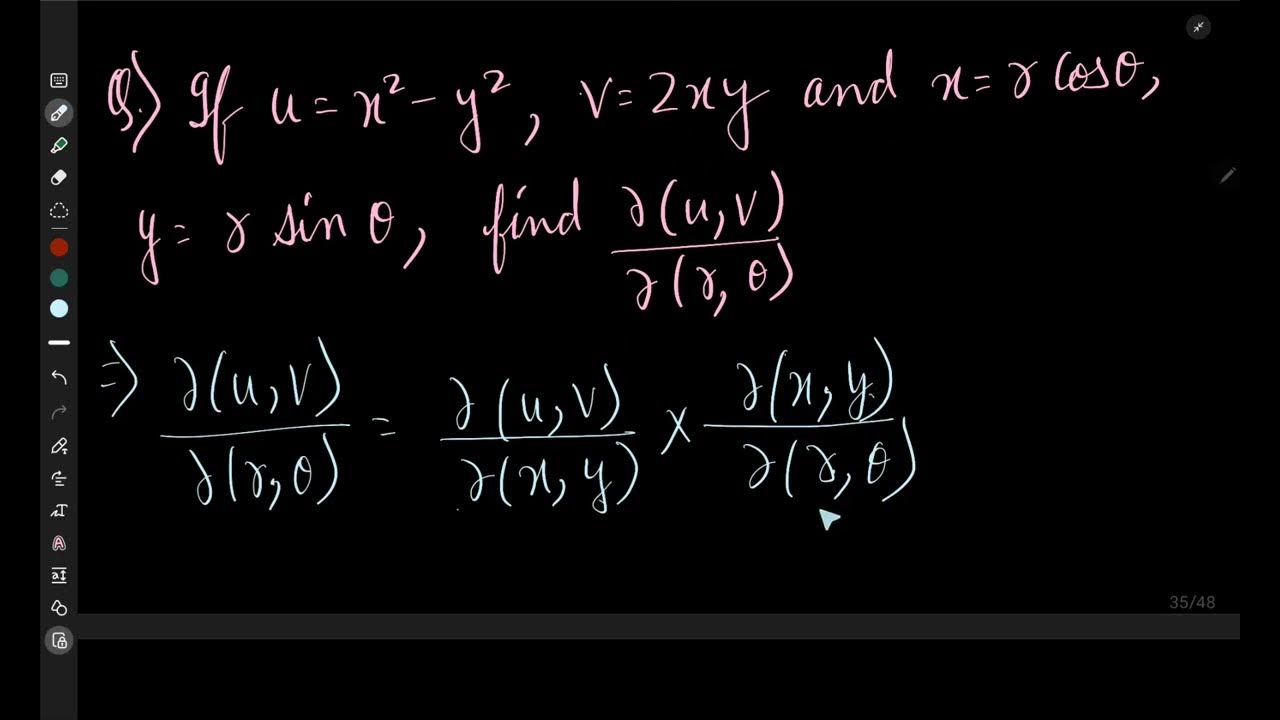 Q.) If u = x² - y², v = 2xy and x = r cosθ,
y = r sin θ, find ∂(u,v)/∂(r,θ)
⇒ ∂(u,v)/∂(r,θ) = ∂(u,v)/∂(x,y) × ∂(x,y)/∂(r,θ)
35/48